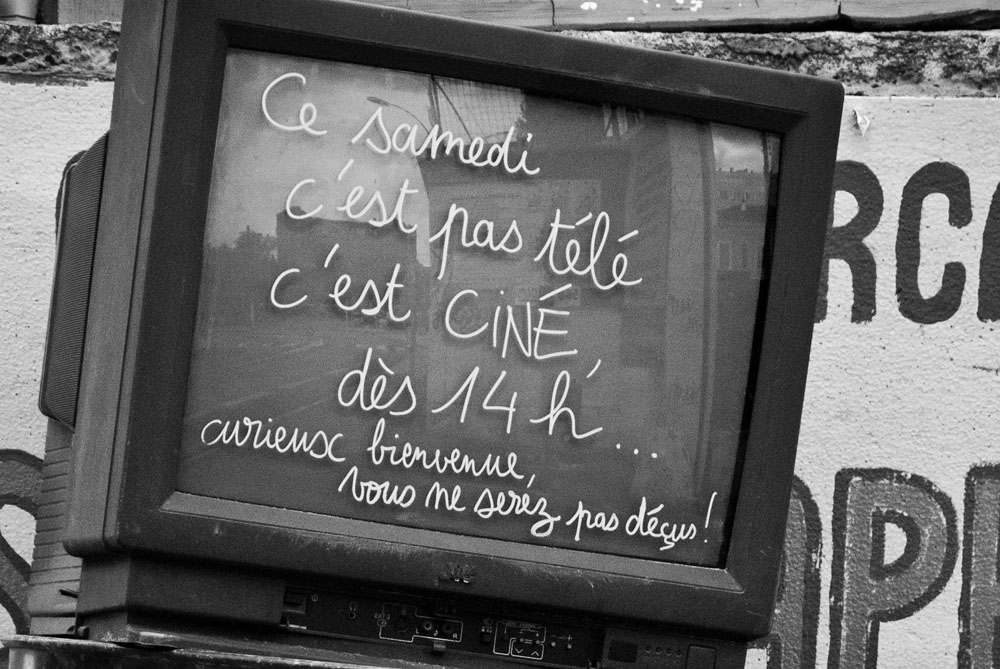 Ce samedi
c'est pas télé
c'est CiNÉ,
dès 14 h'...
curieux bienvenue,
vous ne seréz pas déçus!
RC
AP